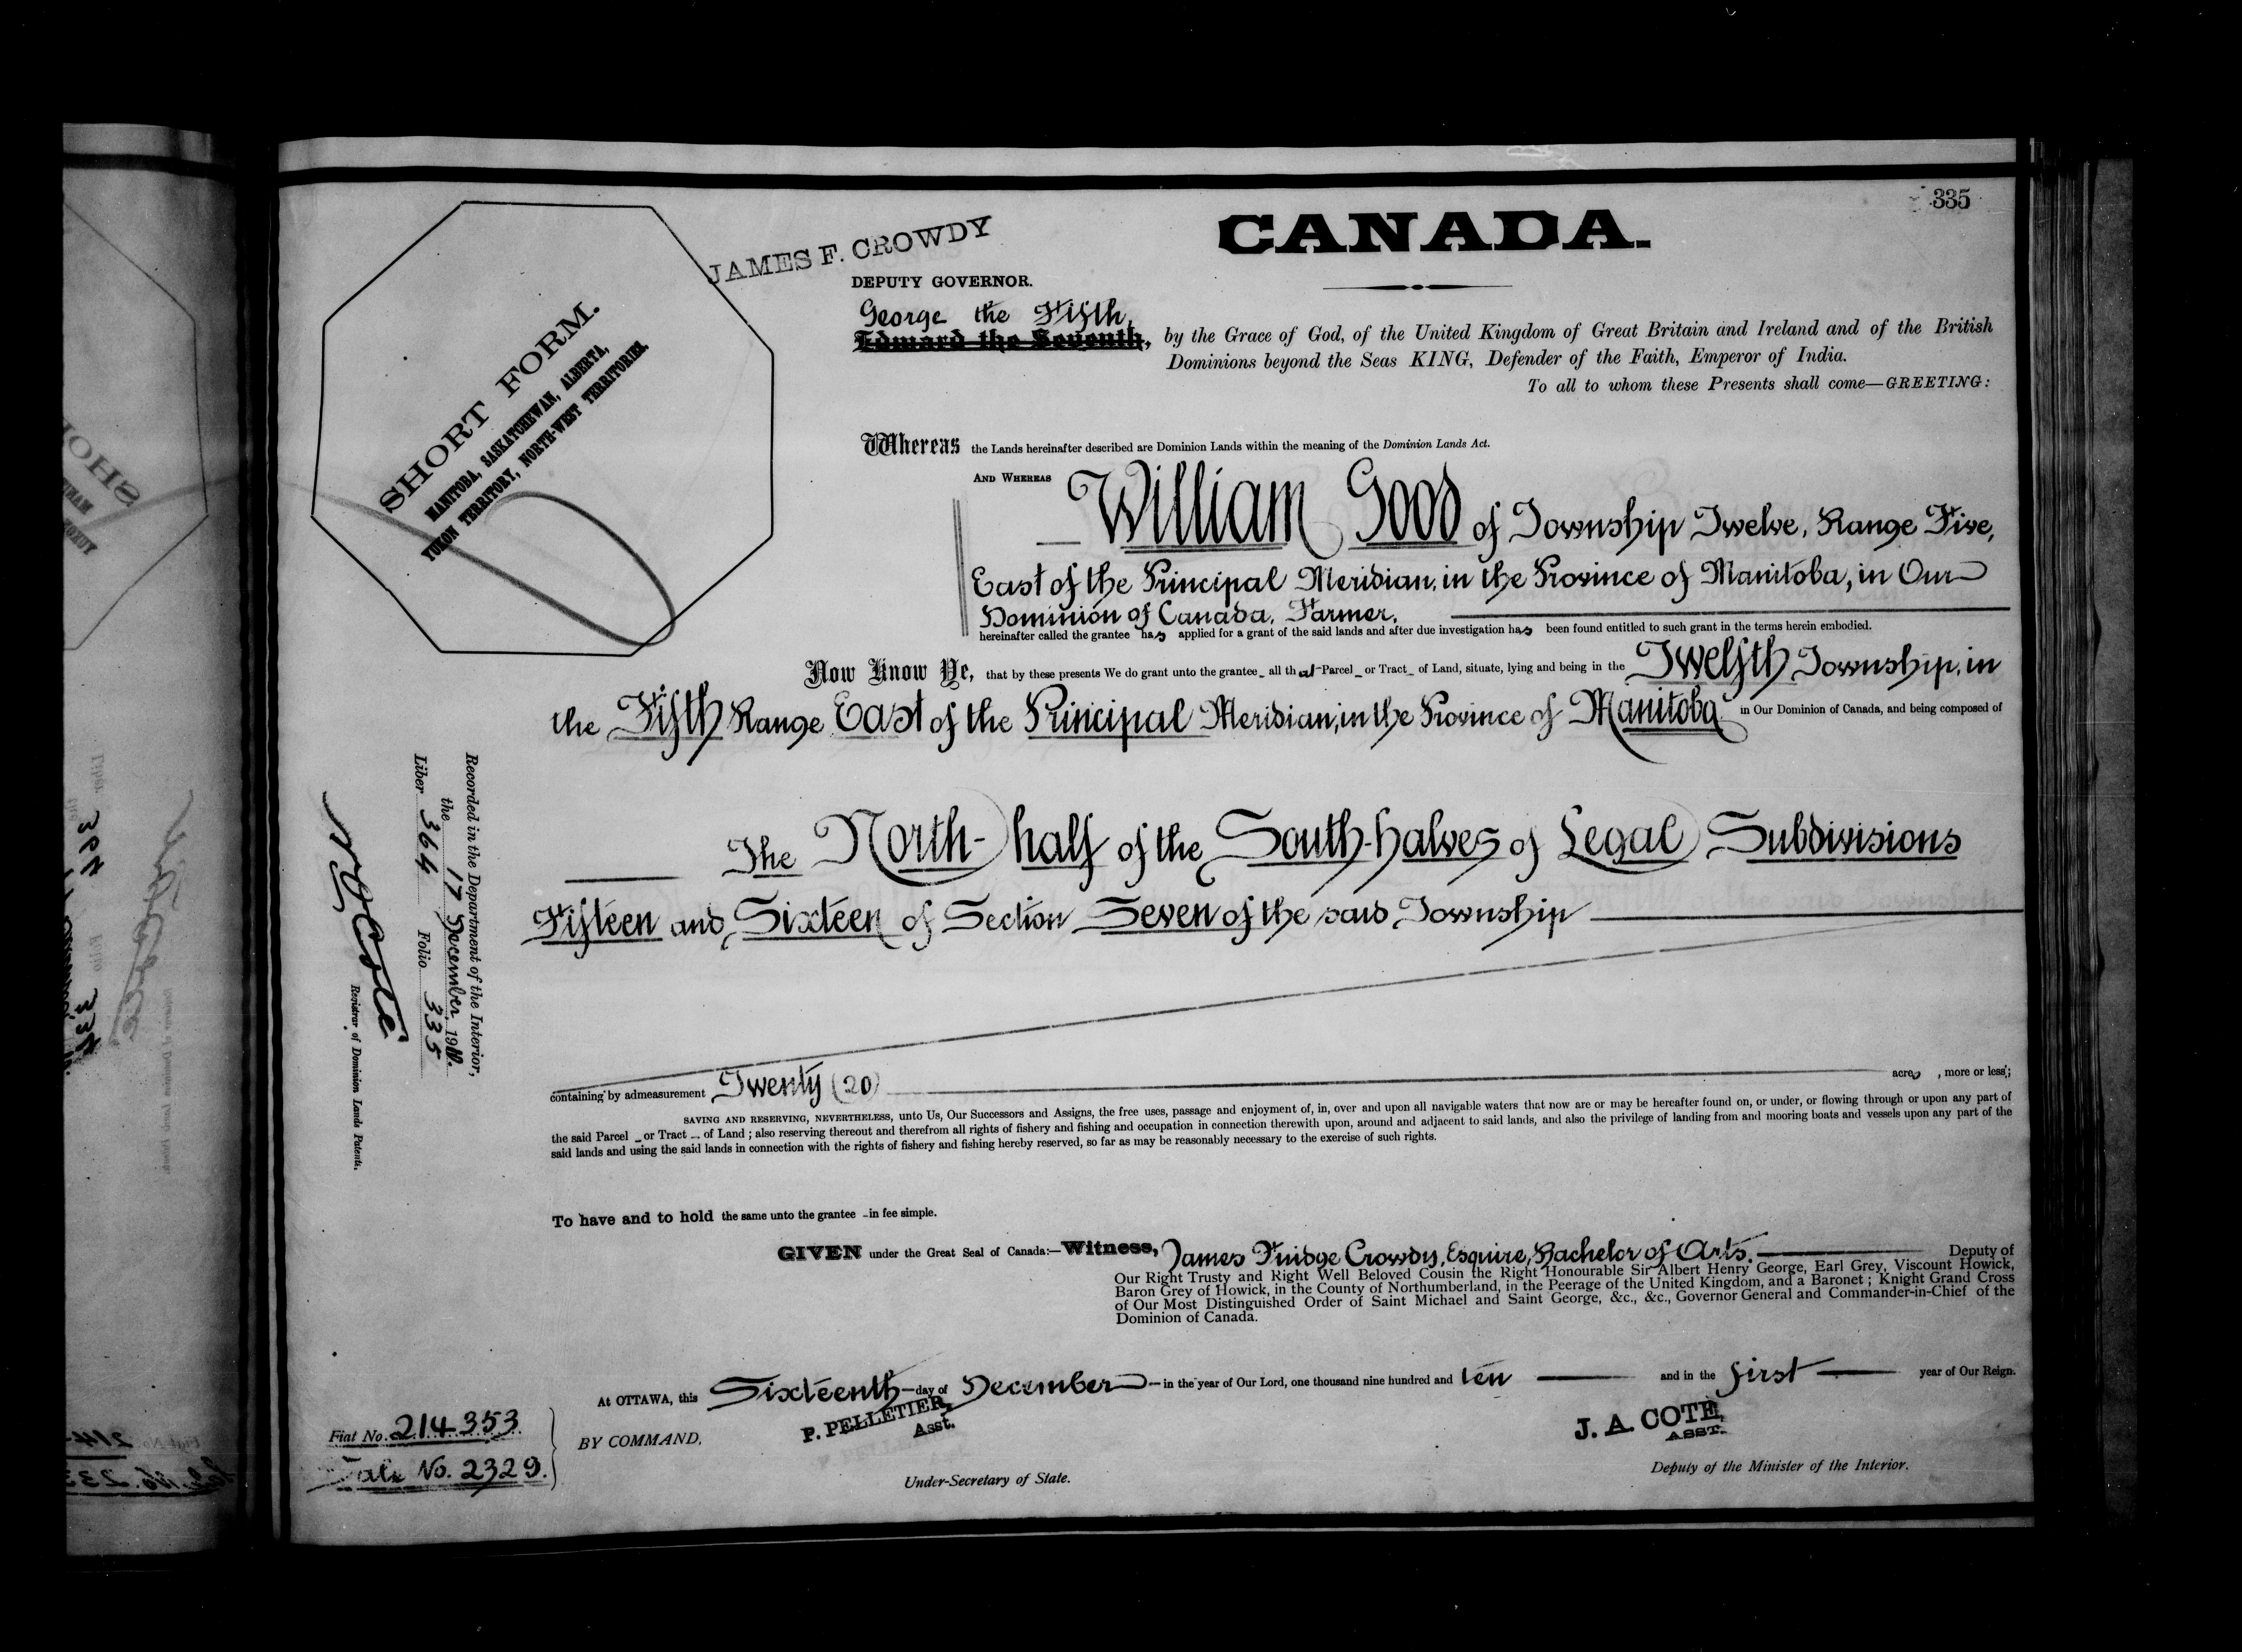 335
CANADA.
JAMES F. CROWDY
DEPUTY GOVERNOR.
SHORT FORM.
MANITOBA, SASKATCHEWAN, ALBERTA,
YUKON TERRITORY, NORTH-WEST TERRITORIES.
George the Fifth,
Edward the Seventh, by the Grace of God, of the United Kingdom of Great Britain and Ireland and of the British
Dominions beyond the Seas KING, Defender of the Faith, Emperor of India.
To all to whom these Presents shall come—GREETING:
Whereas the Lands hereinafter described are Dominion Lands within the meaning of the Dominion Lands Act.
AND WHEREAS William Good of Township Twelve, Range Five,
East of the Principal Meridian, in the Province of Manitoba, in Our
Dominion of Canada, Farmer,
hereinafter called the grantee has applied for a grant of the said lands and after due investigation has been found entitled to such grant in the terms herein embodied.
Now Know Ye, that by these presents We do grant unto the grantee all that Parcel or Tract of Land, situate, lying and being in the Twelfth Township, in
the Fifth Range East of the Principal Meridian, in the Province of Manitoba in Our Dominion of Canada, and being composed of
The North-half of the South-halves of Legal Subdivisions
Fifteen and Sixteen of Section Seven of the said Township
containing by admeasurement Twenty (20) acres, more or less;
SAVING AND RESERVING, NEVERTHELESS, unto Us, Our Successors and Assigns, the free uses, passage and enjoyment of, in, over and upon all navigable waters that now are or may be hereafter found on, or under, or flowing through or upon any part of
the said Parcel or Tract of Land; also reserving thereout and therefrom all rights of fishery and fishing and occupation in connection therewith upon, around and adjacent to said lands, and also the privilege of landing from and mooring boats and vessels upon any part of the
said lands and using the said lands in connection with the rights of fishery and fishing hereby reserved, so far as may be reasonably necessary to the exercise of such rights.
To have and to hold the same unto the grantee in fee simple.
GIVEN under the Great Seal of Canada:—Witness, James Fuidge Crowdy, Esquire, Bachelor of Arts. Deputy of
Our Right Trusty and Right Well Beloved Cousin the Right Honourable Sir Albert Henry George, Earl Grey, Viscount Howick,
Baron Grey of Howick, in the County of Northumberland, in the Peerage of the United Kingdom, and a Baronet; Knight Grand Cross
of Our Most Distinguished Order of Saint Michael and Saint George, &c., &c., Governor General and Commander-in-Chief of the
Dominion of Canada.
At OTTAWA, this Sixteenth day of December in the year of Our Lord, one thousand nine hundred and ten and in the first year of Our Reign.
P. PELLETIER,
Asst.
BY COMMAND,
Under-Secretary of State.
J. A. COTE,
ASST.
Deputy of the Minister of the Interior.
Recorded in the Department of the Interior,
the 17 December, 1910.
Liber 364 Folio 335
N O Cote
Registrar of Dominion Lands Patents.
Fiat No. 214353
Sale No. 2329.